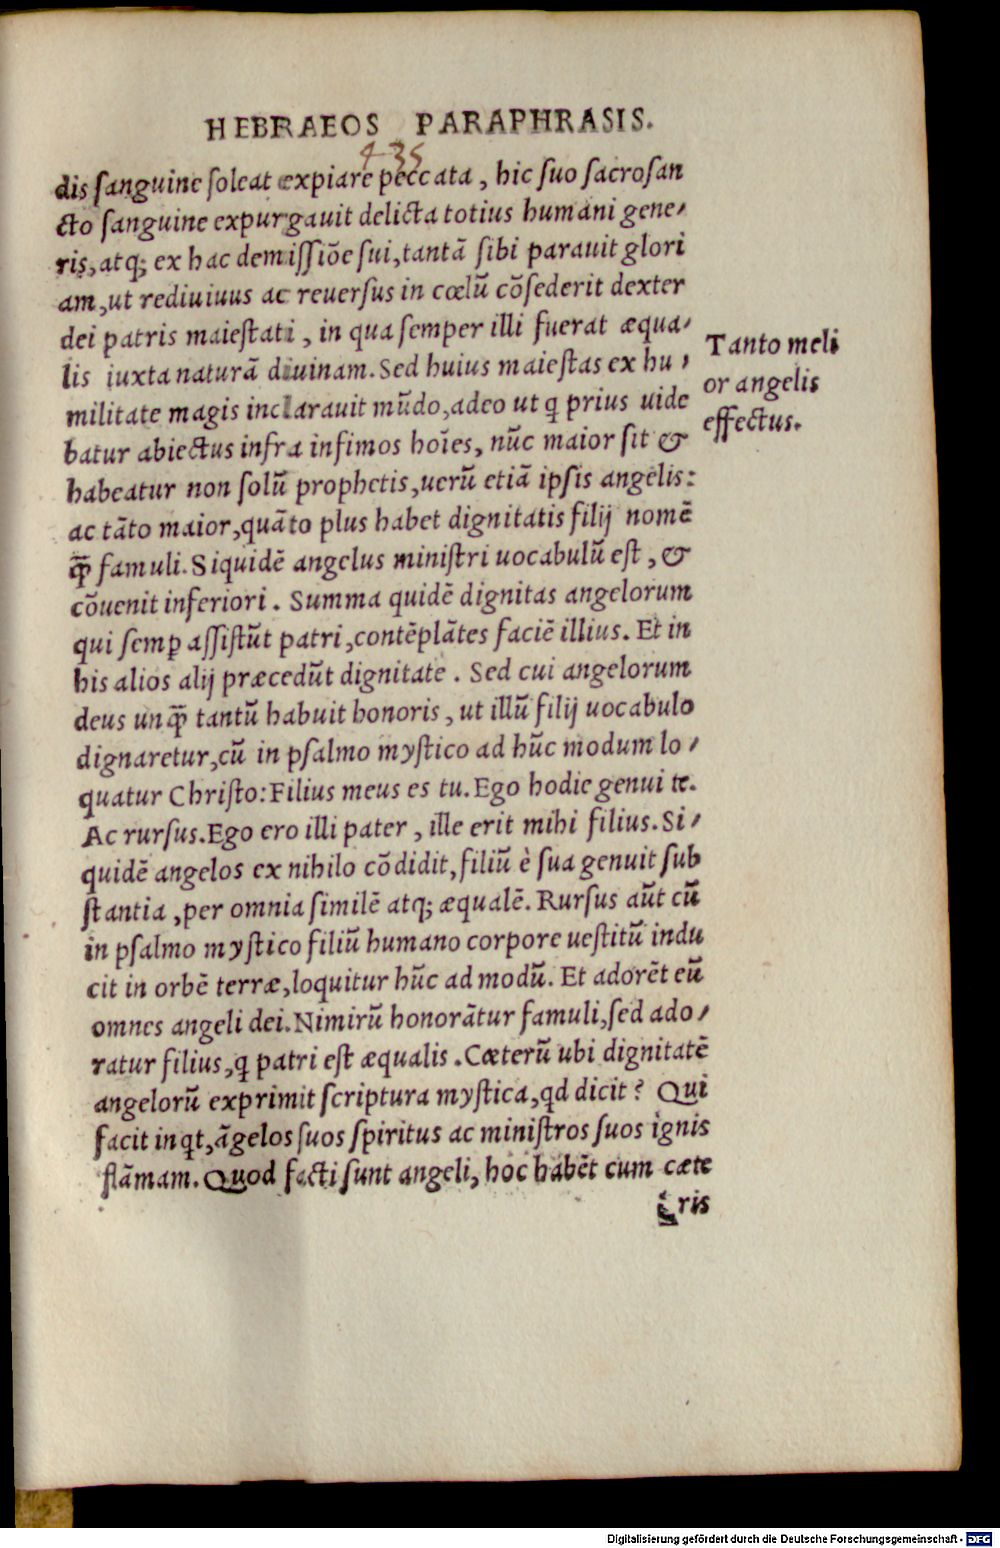 HEBRAEOS PARAPHRASIS.
435
dis ſanguine ſoleat expiare peccata, hic ſuo ſacroſan
cto ſanguine expurgauit delicta totius humani gene⸗
ris, atq; ex hac demiſſiōe ſui, tantā ſibi parauit glori
am, ut rediuiuus ac reuerſus in cœlū cōſederit dexter
dei patris maieſtati, in qua ſemper illi fuerat æqua⸗
lis iuxta naturā diuinam. Sed huius maieſtas ex hu⸗
militate magis inclarauit mūdo, adeo ut q prius uide
batur abiectus infra infimos hoīes, nūc maior ſit &
habeatur non ſolū prophetis, uerū etiā ipſis angelis:
ac tāto maior, quāto plus habet dignitatis filij nomē
q̄ꝓ famuli. Siquidē angelus miniſtri uocabulū eſt, &
cōuenit inferiori. Summa quidē dignitas angelorum
qui ſemꝑ aſſiſtūt patri, contēplātes faciē illius. Et in
his alios alij præcedūt dignitate. Sed cui angelorum
deus unq̄ꝓ tantū habuit honoris, ut illū filij uocabulo
dignaretur, cū in pſalmo myſtico ad hūc modum lo⸗
quatur Chriſto: Filius meus es tu. Ego hodie genui te.
Ac rurſus. Ego ero illi pater, ille erit mihi filius. Si⸗
quidē angelos ex nihilo cōdidit, filiū è ſua genuit ſub
ſtantia, per omnia ſimilē atq; æqualē. Rurſus aūt cū
in pſalmo myſtico filiū humano corpore ueſtitū indu
cit in orbē terræ, loquitur hūc ad modū. Et adorēt eū
omnes angeli dei. Nimirū honorātur famuli, ſed ado⸗
ratur filius, q patri eſt æqualis. Cæterū ubi dignitatē
angelorū exprimit ſcriptura myſtica, qd dicit? Qui
facit inqt, āgelos ſuos ſpiritus ac miniſtros ſuos ignis
flāmam. Quod facti ſunt angeli, hoc habēt cum cæte
ris
Tanto meli
or angelis
effectus.
Digitalisierung gefördert durch die Deutsche Forschungsgemeinschaft - DFG